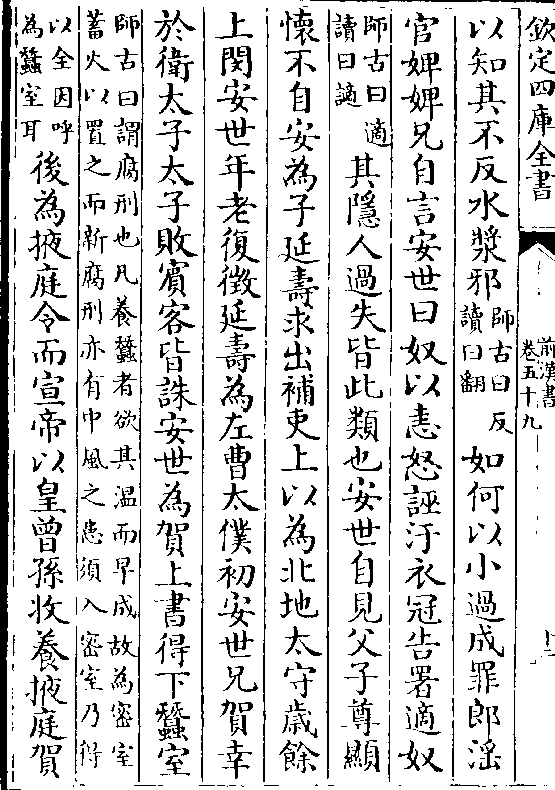 欽定四庫全書
前漢書
卷五十九
以知其不反水漿邪師古曰反讀曰翻如何以小過成罪郎淫
官婢婢兄自言安世曰奴以恚怒誣汙衣冠告署適奴
師古曰適讀曰謫其隱人過失皆此類也安世自見父子尊顯
懷不自安為子延壽求出補吏上以為北地太守歲餘
上閔安世年老復徵延壽為左曹太僕初安世兄賀幸
於衛太子太子敗賓客皆誅安世為賀上書得下蠶室
師古曰謂腐刑也凡養蠶者欲其温而早成故為密室
蓄火以置之而新腐刑亦有中風之患須入密室乃得
以全因呼為蠶室耳後為掖庭令而宣帝以皇曾孫收養掖庭賀